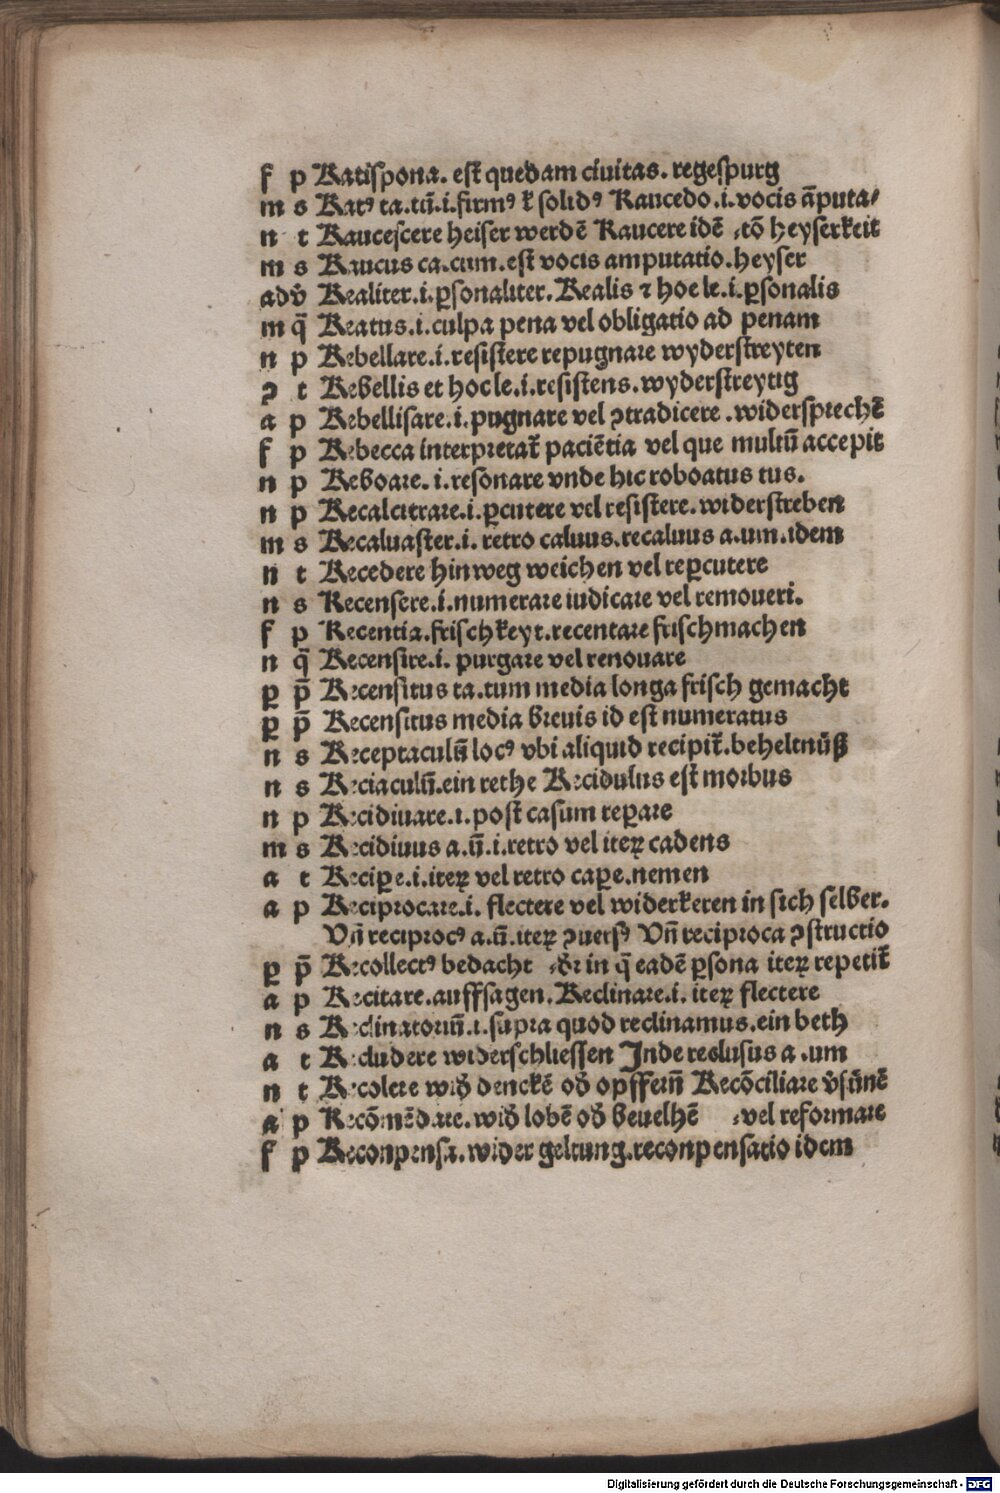 f p Ratispona. est quedam ciuitas. regespurg
m s Ratꝰ ta. tū. i. firmꝰ ⁊ solidꝰ Raucedo. i. vocis āputa/
n t Raucescere heiser werdē Raucere idē ·tō heyserkeit
m s Raucus ca. cum. est vocis amputatio. heyser
adv̄ Realiter. i. ꝑsonaliter. Realis ⁊ hoc le. i. ꝑsonalis
m q̄ Reatus. i. culpa pena vel obligatio ad penam
n p Rebellare. i. resistere repugnare wyderstreyten
ꝯ t Rebellis et hoc le. i. resistens. wyderstreytig
a p Rebellisare. i. pugnare vel ꝯtradicere. widersprechē
f p Rebecca interpretat̄ paciētia vel que multū accepit
n p Reboare. i. resonare vnde hic roboatus tus.
n p Recalcitrare. i. ꝑcutere vel resistere. widerstreben
m s Recaluaster. i. retro caluus. recaluus a. um. idem
n t Recedere hinweg weichen vel reꝑcutere
n s Recensere. i. numerare iudicare vel remoueri.
f p Recentia. frischkeyt. recentare frischmachen
n q̄ Recensire. i. purgare vel renouare
ꝑ p̄ Recensitus ta. tum media longa frisch gemacht
ꝑ p̄ Recensitus media breuis id est numeratus
n s Receptaculū locꝰ vbi aliquid recipit̄. beheltnüß
n s Reciaculū. ein rethe Recidulus est morbus
n p Recidiuare. i. post casum reꝑare
m s Recidiuus a. ū. i. retro vel iteꝝ cadens
a t Reciꝑe. i. iteꝝ vel retro caꝑe. nemen
a p Reciprocare. i. flectere vel widerkeren in sich selber.
Vn̄ reciprocꝰ a. ū. iteꝝ ꝯuersꝰ Vn̄ reciproca ꝯstructio
ꝑ p̄ Recollectꝰ bedacht ·dr̄ in q̄ eadē ꝑsona iteꝝ repetit̄
a p Recitare. auffsagen. Reclinare. i. iteꝝ flectere
n s Reclinatoriū. i. supra quod reclinamus. ein beth
a t Recludere widerschliessen Inde reclusus a. um
n t Recolere wid̄ denckē od̄ opffern̄ Recōciliare v̄sünē
a p Recōmēdare. wid̄ lobē od̄ beuelhē ·vel reformare
f p Reconpensa. wider geltung. reconpensatio idem
Digitalisierung gefördert durch die Deutsche Forschungsgemeinschaft - DFG